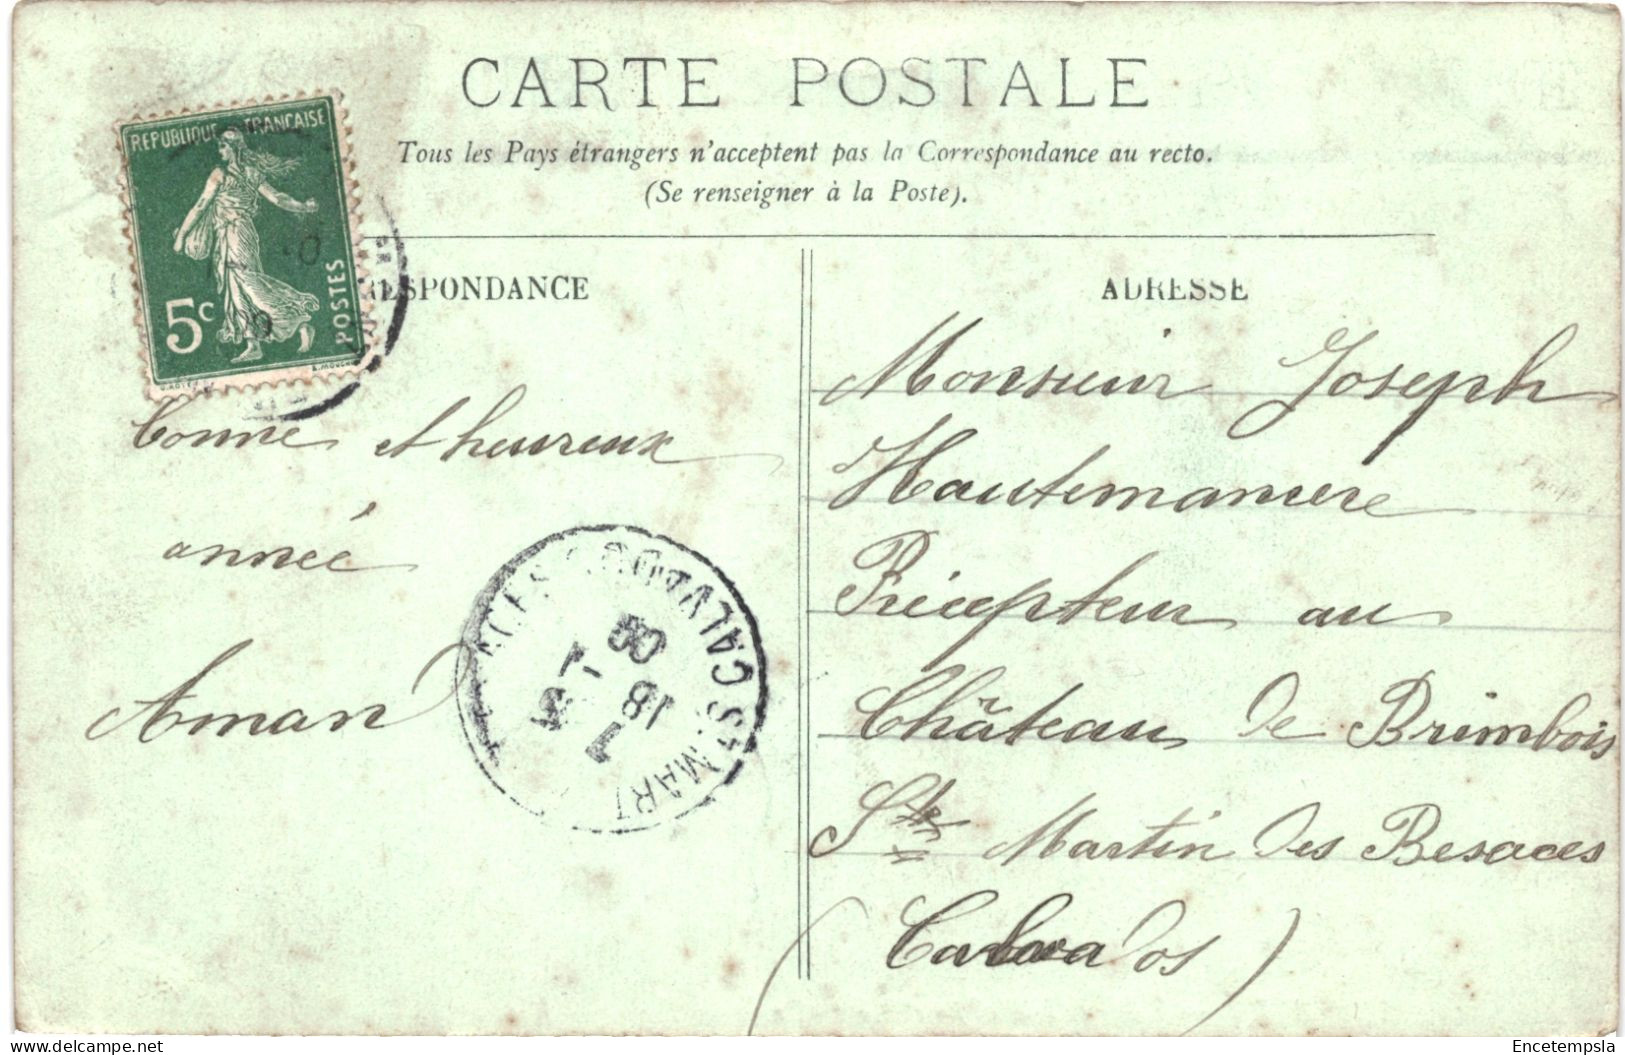 CARTE POSTALE
Tous les Pays étrangers n'acceptent pas la Correspondance au recto.
(Se renseigner à la Poste).
REPUBLIQUE FRANÇAISE
5c
POSTES
RESPONDANCE
ADRESSE
bonne et heureux
année
Aman
Monsieur Joseph
Hautemaniere
Précepteur au
Château de Brimbois
St Martin des Besaces
(Calvados)
ST MART CALVADOS
18
1
09
delcampe.net
Encetempsla